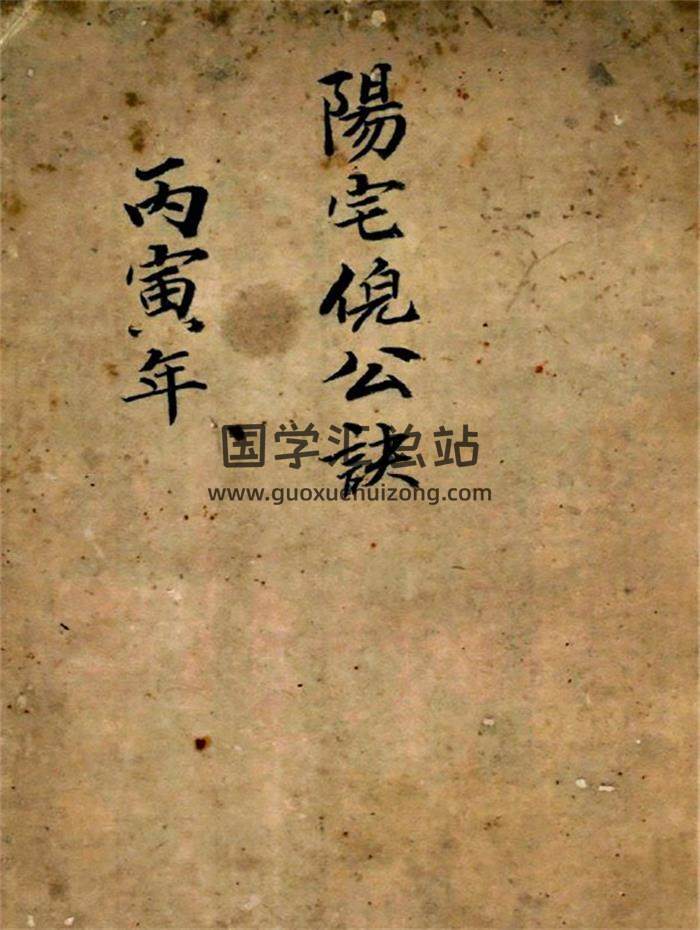 陽宅倪公訣
丙寅年
国学汇总站
www.guoxuehuizong.com